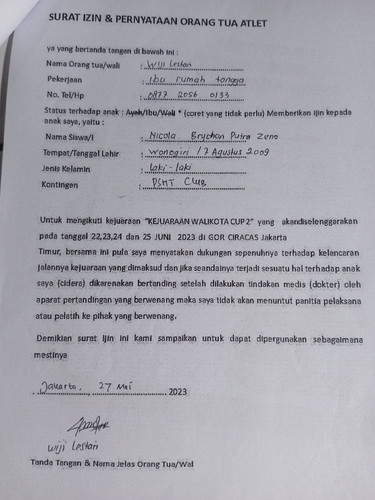 SURAT IZIN & PERNYATAAN ORANG TUA ATLET
ya yang bertanda tangan di bawah ini :
Nama Orang tua/wali : Wiji Lestari
Pekerjaan : Ibu rumah tangga
No. Tel/Hp : 0877 2056 0133
Status terhadap anak : Ayah/Ibu/Wali * (coret yang tidak perlu) Memberikan Ijin kepada
anak saya, yaitu :
Nama Siswa/I : Nicola Brychan Putra Zeno
Tempat/Tanggal Lahir : Wonogiri / 7 Agustus 2009
Jenis Kelamin : Laki - laki
Kontingen : PSHT Club
Untuk mengikuti kejuaraan "KEJUARAAN WALIKOTA CUP 2" yang akandiselenggarakan
pada tanggal 22,23,24 dan 25 JUNI 2023 di GOR CIRACAS Jakarta
Timur, bersama ini pula saya menyatakan dukungan sepenuhnya terhadap kelancaran
jalannya kejuaraan yang dimaksud dan jika seandainya terjadi sesuatu hal terhadap anak
saya (cidera) dikarenakan bertanding setelah dilakukan tindakan medis (dokter) oleh
aparat pertandingan yang berwenang maka saya tidak akan menuntut panitia pelaksana
atau pelatih ke pihak yang berwenang.
Demikian surat Ijin ini kami sampaikan untuk dapat dipergunakan sebagaimana
mestinya
Jakarta, 27 Mei 2023
Wiji Lestari
Tanda Tangan & Nama Jelas Orang Tua/Wal